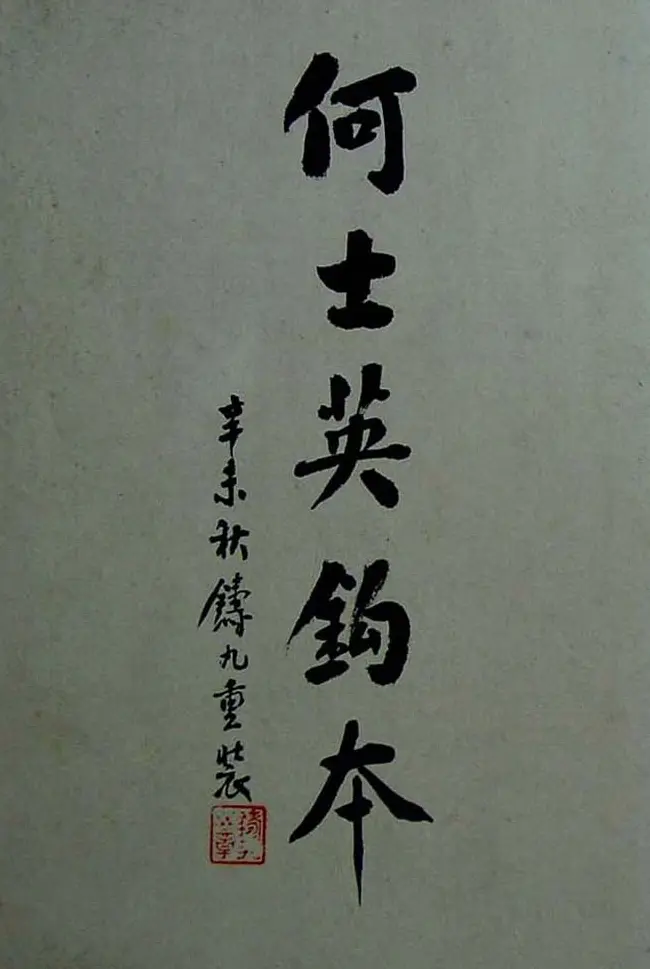 何士英鈎本
辛未秋鑄九重裝